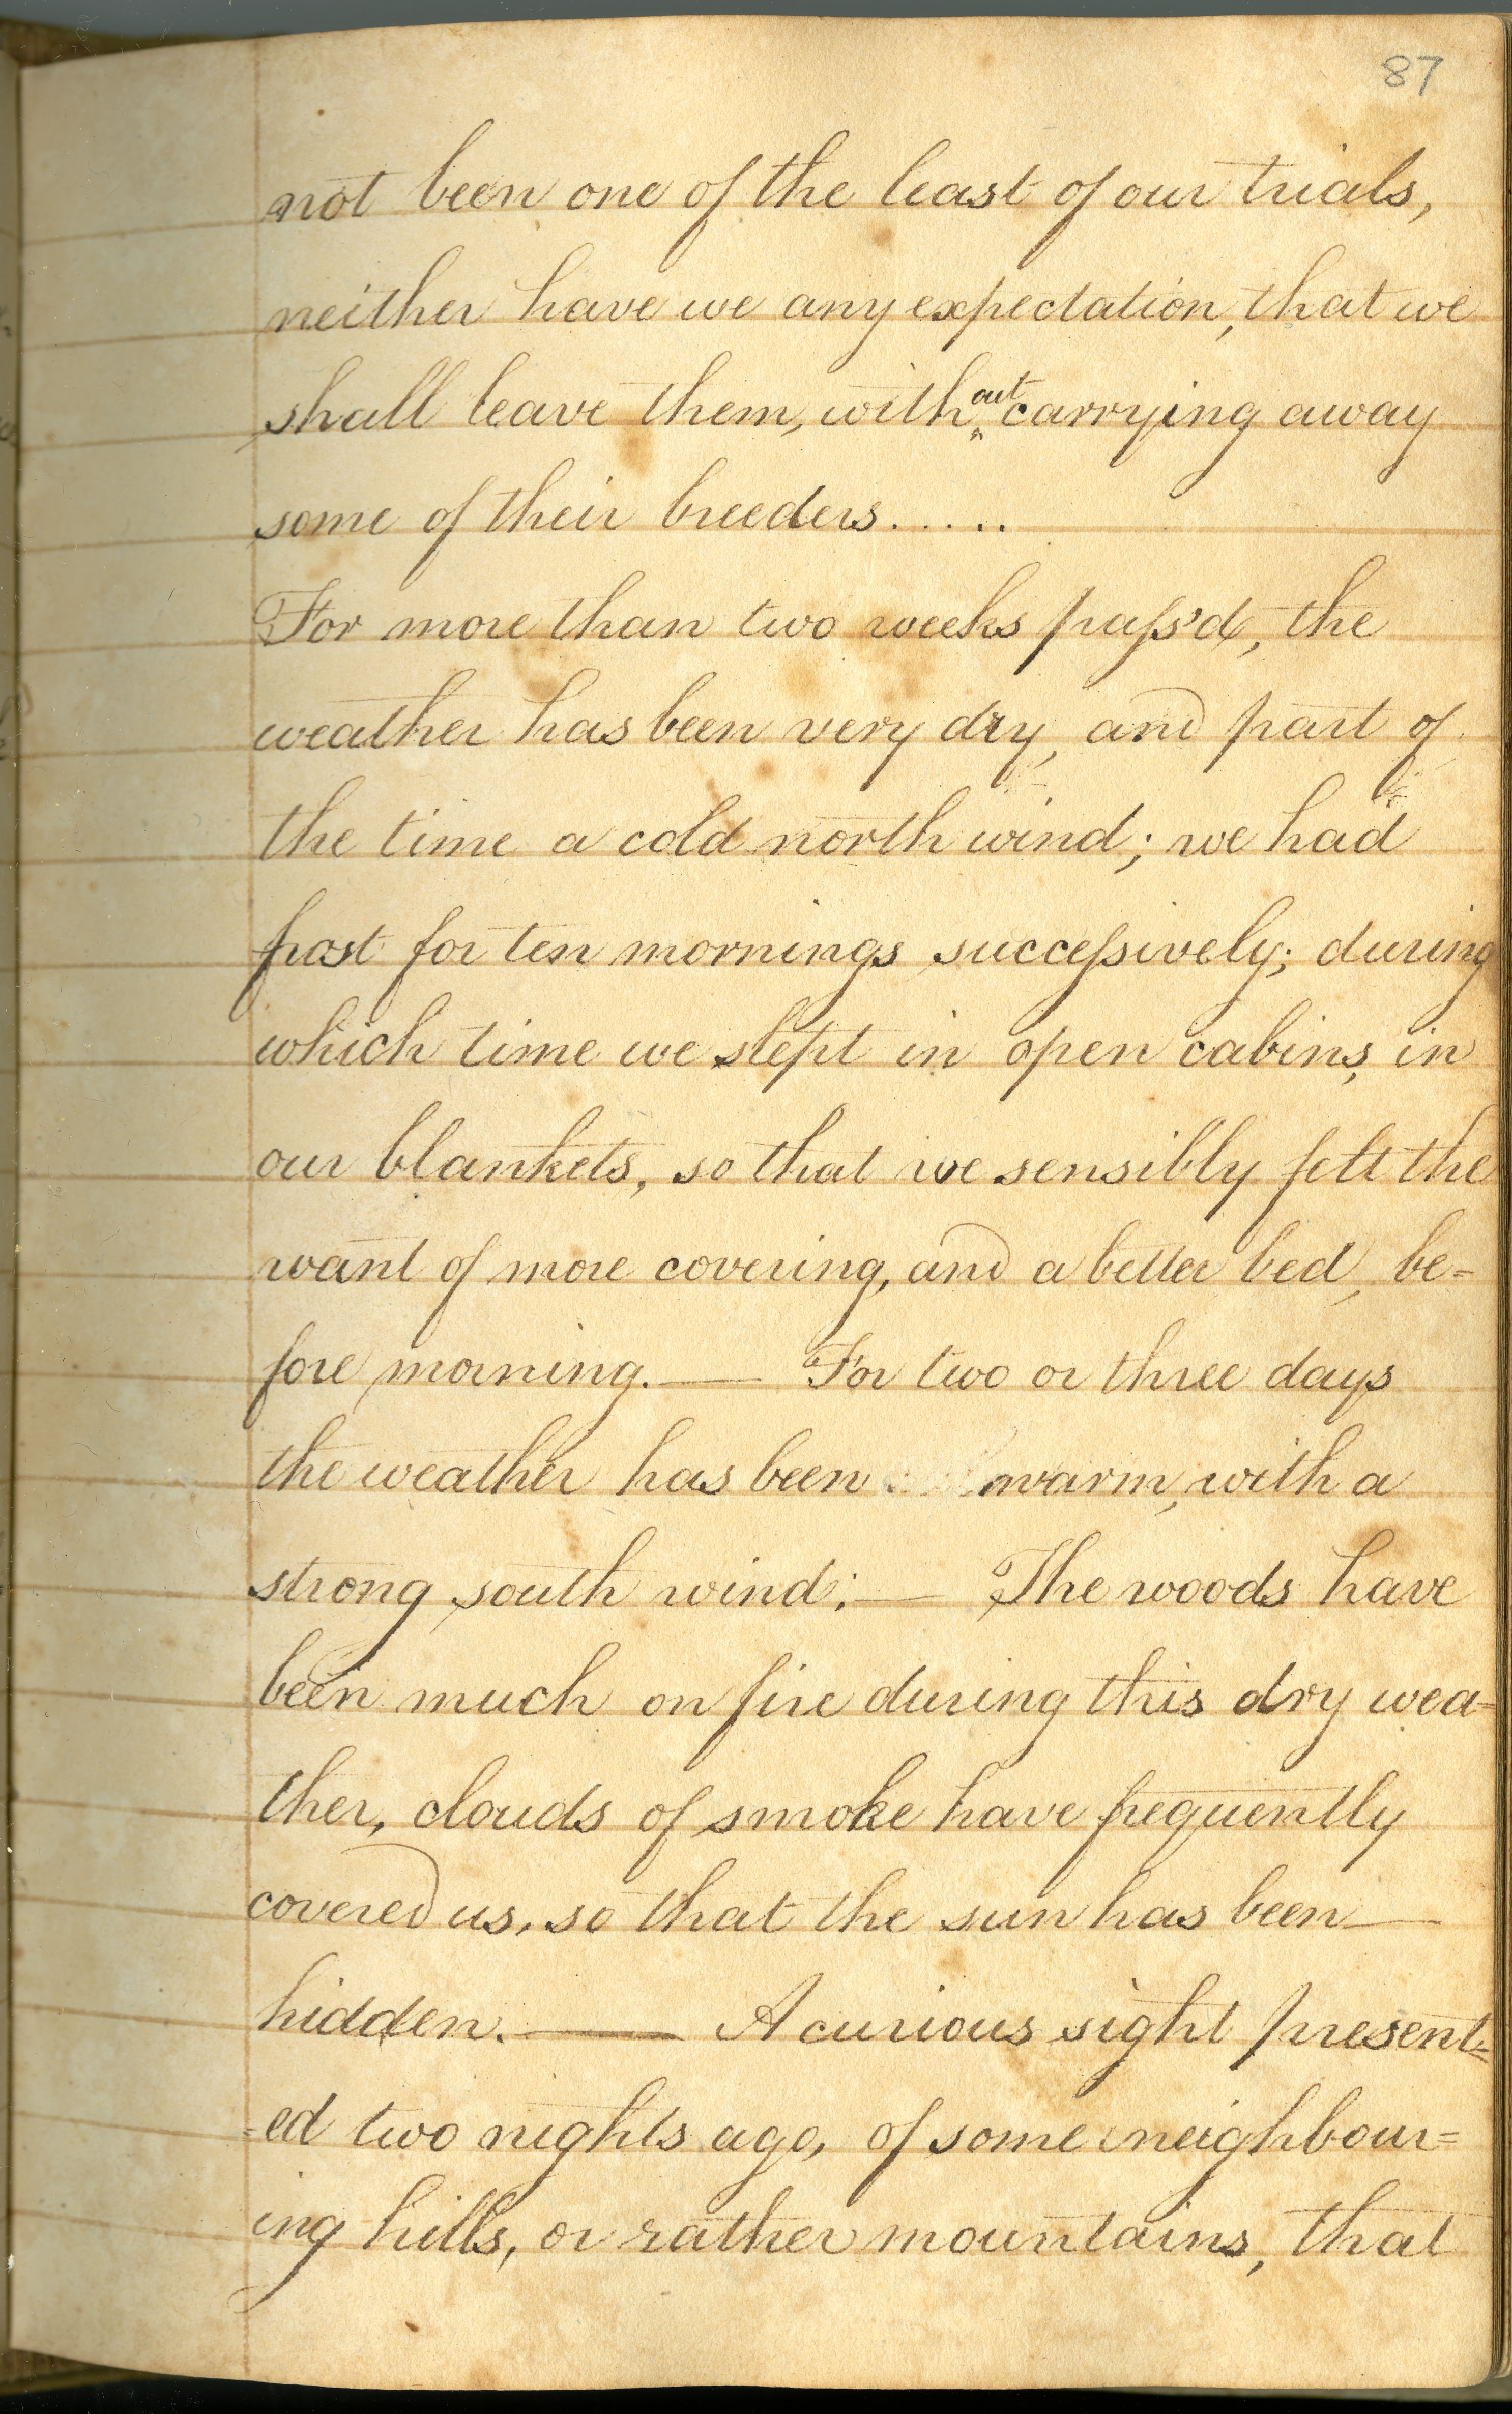 87
not been one of the least of our trials,
neither have we any expectation, that we
shall leave them, with^out carrying away
some of their breeders.....
For more than two weeks paſs'd, the
weather has been very dry, and part of
the time a cold north wind; we had
frost for ten mornings succeſsively; during
which time we slept in open cabins, in
our blankets, so that we sensibly felt the
want of more covering, and a better bed, be=
fore morning.— For two or three days
the weather has been warm, with a
strong south wind:— The woods have
been much on fire during this dry wea=
ther, clouds of smoke have frequently
covered us, so that the sun has been—
hidden.— A curious sight present=
=ed two nights ago, of some neighbour=
ing hills, or rather mountains, that